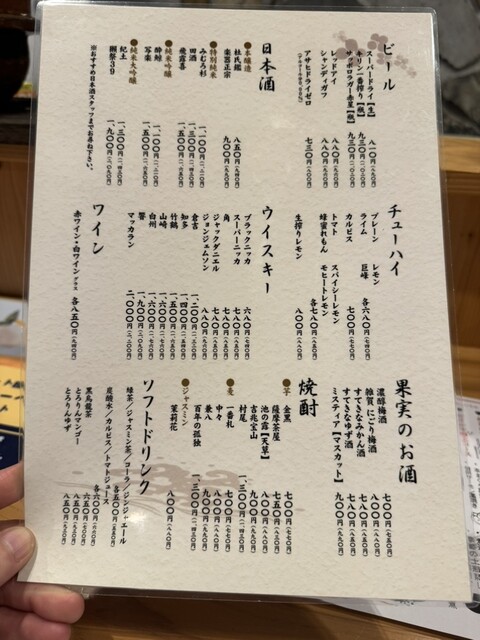 ビール
スーパードライ【生】 八一〇円
キリン一番搾り【瓶】 九三〇円
サッポロラガー赤星【瓶】 九三〇円
レッドアイ 八八〇円
シャンディガフ 八八〇円
アサヒドライゼロ 七三〇円
日本酒
●本醸造
杜氏鑑 八五〇円
楽器正宗 九〇〇円(九九〇円)
●特別純米
みむろ杉 一、一〇〇円(一、二一〇円)
田酒 一、三〇〇円(一、四三〇円)
飛露喜 一、五〇〇円(一、六五〇円)
●純米吟醸
酔鯨 一、一〇〇円(一、二一〇円)
写楽 一、五〇〇円(一、六五〇円)
●純米大吟醸
紀土 一、三〇〇円(一、四三〇円)
獺祭39 一、九〇〇円(二、〇九〇円)
※おすすめ日本酒スタッフまでお尋ね下さい。
チューハイ
プレーン レモン
ライム 巨峰
カルピス 各六八〇円
トマト スパイシーレモン
蜂蜜れもん モヒートレモン
各七八〇円
生搾りレモン 八〇〇円(八八〇円)
ウイスキー
ブラックニッカ 六八〇円
スーパーニッカ 七八〇円
角 七八〇円
ジャックダニエル 八八〇円
ジョンジェムソン 八八〇円
倉吉 一、二〇〇円
知多 一、四〇〇円
竹鶴 一、五〇〇円
山崎 一、六〇〇円
白州 一、六〇〇円
響 一、九〇〇円
マッカラン 二、〇〇〇円
ワイン
赤ワイン・白ワイン グラス 各八五〇円
果実のお酒
濃醇梅酒
雑賀 にごり梅酒
すてきなみかん酒
すてきなゆず酒
ミスティア【マスカット】
焼酎
●芋
金黒 七〇〇円(七七〇円)
薩摩茶屋 七五〇円
池の露【天草】 九〇〇円(九九〇円)
吉兆宝山 九〇〇円(九九〇円)
村尾 一、三〇〇円(一、四三〇円)
●麦
一番札 七〇〇円(七七〇円)
中々 八〇〇円(八八〇円)
兼八 九〇〇円(九九〇円)
百年の孤独 一、三〇〇円(一、四三〇円)
●ジャスミン
茉莉花 八〇〇円(八八〇円)
ソフトドリンク
緑茶／ジャスミン茶／コーラ／ジンジャエール
各五〇〇円(五五〇円)
炭酸水／カルピス／トマトジュース
各六〇〇円(六六〇円)
黒烏龍茶 六五〇円
とろりんマンゴー 八五〇円
とろりんゆず 八五〇円